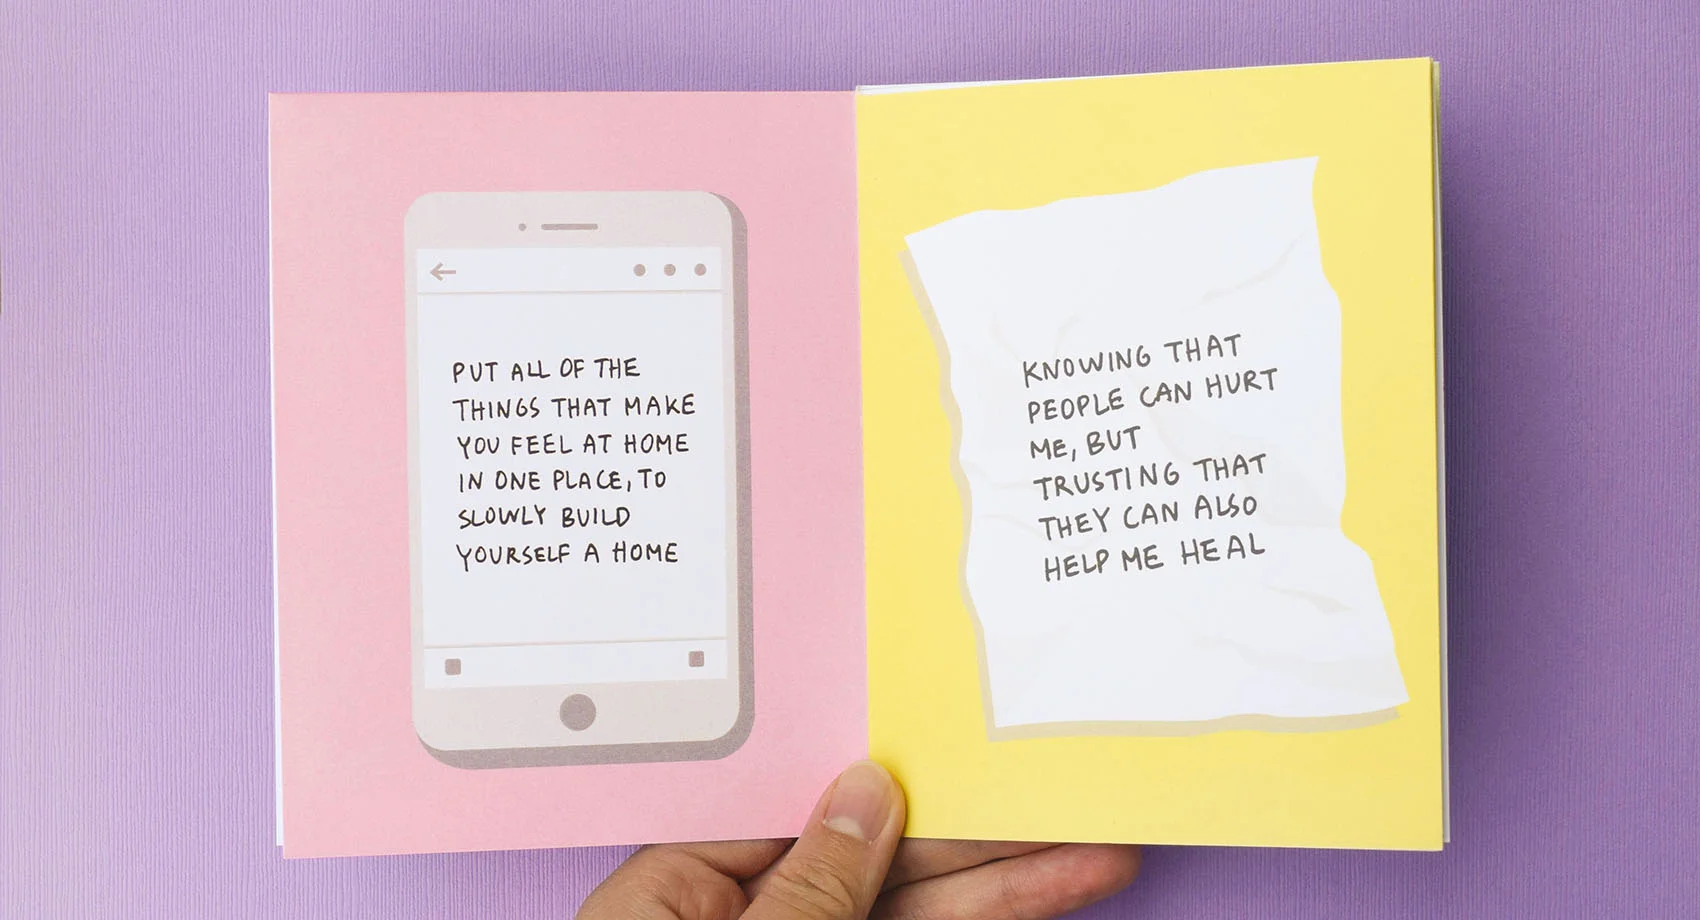 PUT ALL OF THE
THINGS THAT MAKE
YOU FEEL AT HOME
IN ONE PLACE, TO
SLOWLY BUILD
YOURSELF A HOME
KNOWING THAT
PEOPLE CAN HURT
ME, BUT
TRUSTING THAT
THEY CAN ALSO
HELP ME HEAL